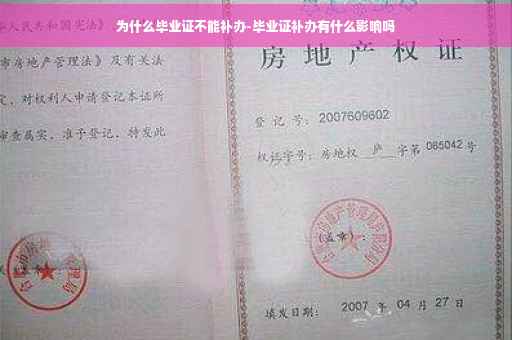 为什么毕业证不能补办-毕业证补办有什么影响吗
人民共和国宪法》
市房地产管理法》及有关法
定，对权利人申请登记本证所
审查属实，准予登记，特发此
房地产权证
登记号：2007609602
权证字号：房地权 庐 字第 065042 号
(盖章)：
填发日期：2007 年 04 月 27 日